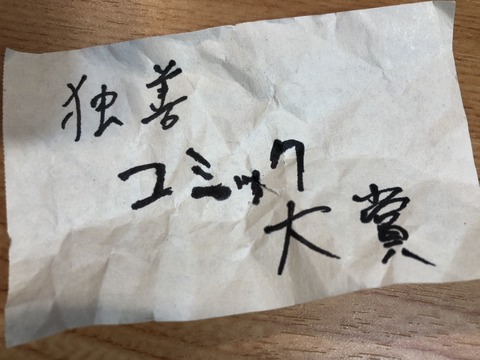 独善
コミック
大賞